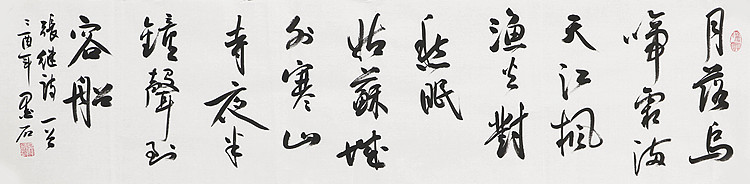 月落烏
啼霜滿
天江楓
漁火對
愁眠
姑蘇城
外寒山
寺夜半
鐘聲到
客船
張継詩一首
丁酉年墨石